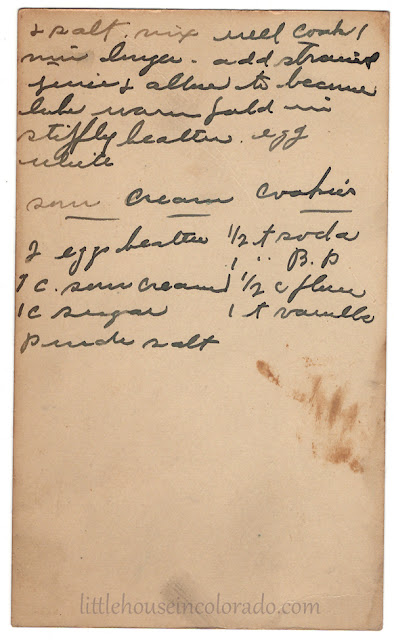 & salt. mix well cook 1
min longer - add strained
juice & allow to become
luke warm fold in
stiffly beaten egg
white
sour cream cookies
2 eggs beaten 1/2 t soda
1 " B.P
1 c. sour cream 1 1/2 c flour
1 c sugar 1 t vanilla
pinch salt
littlehouseincolorado.com